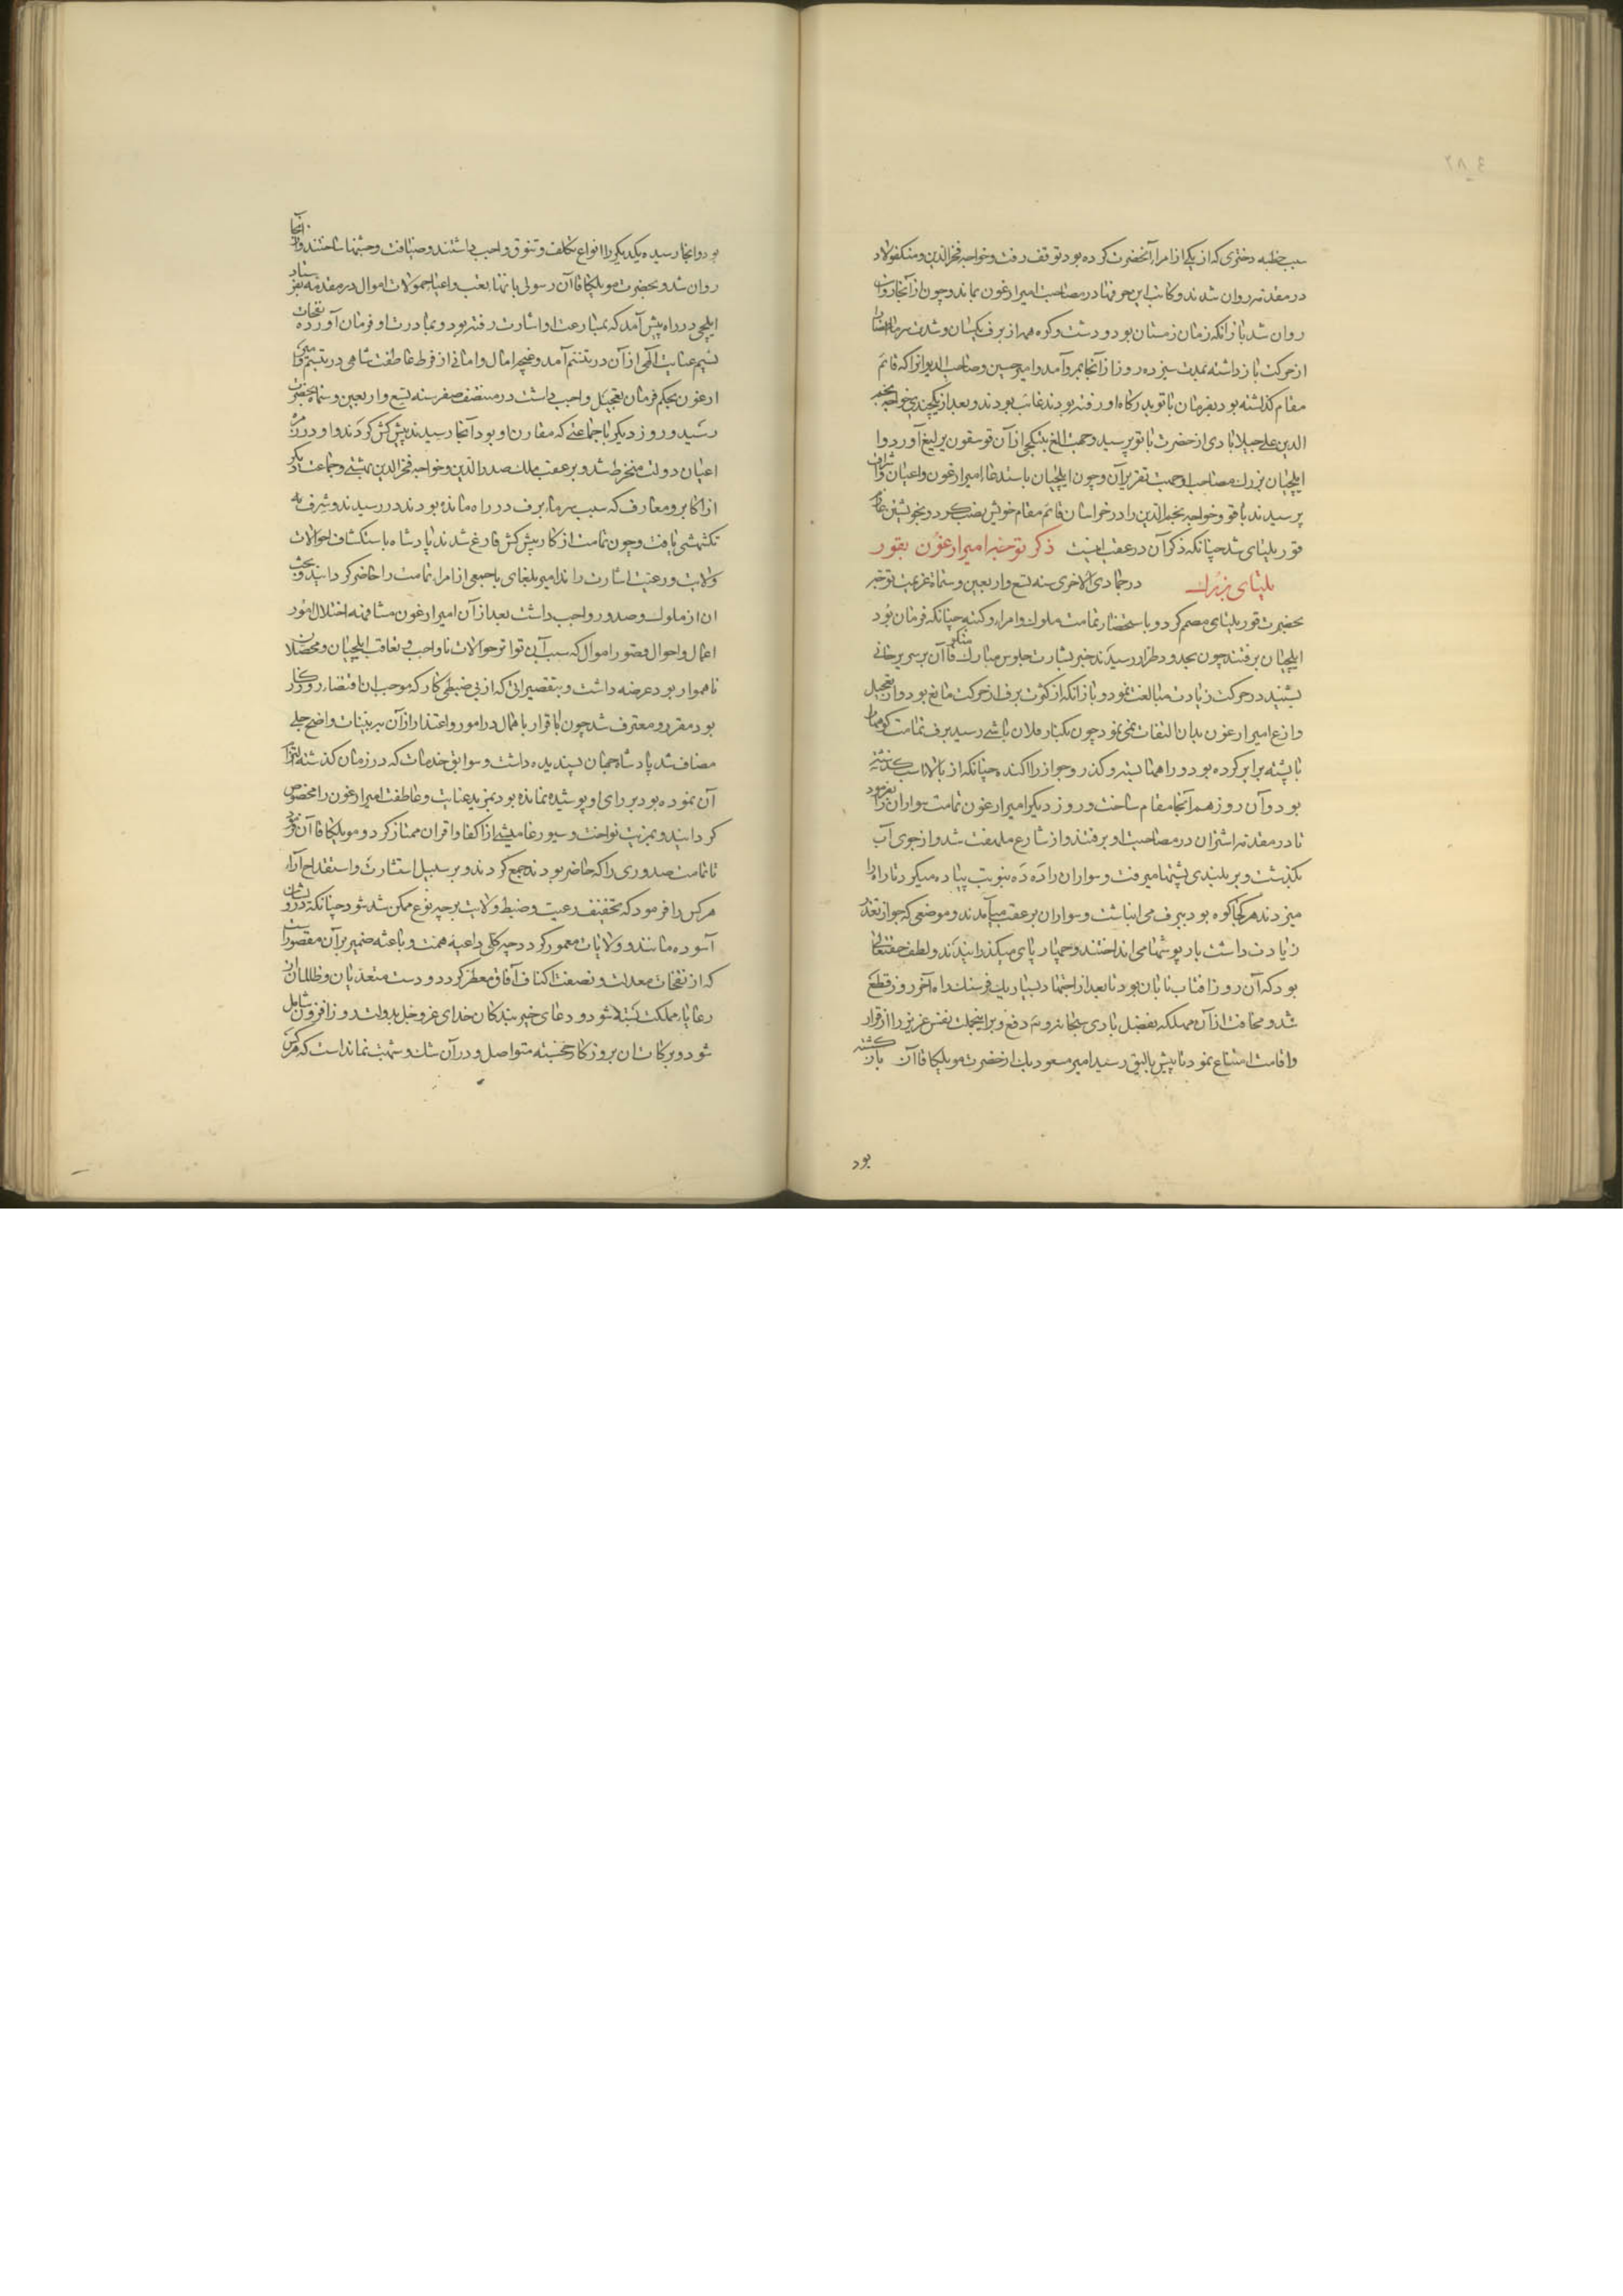 سبب خطبه دختری که از یکی از امراء آنحضرت کرده بود توقف رفت و خواجه فخرالدین و منکفولاد
در مقدمه روان شدند و کاتب این حرفها در مصاحبت امیر ارغون بماند و چون از آنجا روان
روان شد بازانکه زمان زمستان بود و دشت و کوه همه از برف یکسان و شدت سرما اعضا را
از حرکت بازداشته بمدت سیزده روز از آنجا بمرو آمد و امیر حسین و صاحب الدیوانرا که قائم
مقام گذاشته بود بفرمان باتو بدرگاه او رفته بودند غائب بودند و بعد از یکچندی خواجه نجم
الدین علی جیلابادی از حضرت باتو برسید و جهت الغ بتکچی از آن توسقون یرلیغ آورد و ا
ایلچیان بزرگ مصاحب او جهت تقریر آن و چون ایلچیان باستدعا امیر ارغون و اعیان و اشراف
برسیدند باقو و خواجه نجم الدین را در خراسان قائم مقام خویش نصب کرد و بخویشتن عازم
قوریلتای شد چنانکه ذکر آن در عقب اینست ذکر توجه امیر ارغون بقور
یلتای بزرگ در جمادی الاخری سنه تسع و اربعین و ستمائه عزیمت توجه
بحضرت قوریلتای مصمم کرد و باستحضار تمامت ملوک و امرا و کتبه چنانکه فرمان بود
ایلچیان برفتند چون بحدود طراز رسیدند خبر بشارت جلوس مبارک منکو قاآن بر سریر خانی
بشنید در حرکت زیادت مبالغت نمود و بازانکه از کثرت برف از حرکت مانع بود و از تعجیل
وازع امیر ارغون بدان التفات نمی نمود چون بکنار فلان باشی رسید برف تمامت کوهها را
با پشته برابر کرده بود و راهها بسته و گذر و جواز را آکنده چنانکه از بالا اسب گذشته
بود و آن روز هم آنجا مقام ساخت و روز دیگر امیر ارغون تمامت سواران را بفرمود
تا در مقدمه اشتران در مصاحبت او برفتند و از شارع ملتفت شد و از جوی آب
بگذشت و بر بلندی پشتها میرفت و سواران را ده ده بنوبت پیاده میکرد تا راه را
میزدند هر کجا کوه بود ببرف می انباشت و سواران بر عقب میآمدند و موضعی که جواز تعذر
زیادت داشت بارپوشها می انداختند و چهارپای میگذرانیدند و لطف حقتعالی
بود که آن روز آفتاب تابان بود تا بعد از اجتهاد بسیار یک فرسنگ راه آخر روز قطع
شد و مخافت از آن مهلکه بفضل باری سبحانه و تعالی دفع و بر اینجملت نفس عزیز را از قرار
و اقامت امتناع نمود تا پیش بالیق رسید امیر مسعود بک از حضرت مونکا قاآن بازگشته
بود
بود و آنجا رسیده یکدیگر را انواع تکلف و تنوق واجب داشتند و ضیافت و جشنها ساختند و از آنجا
روان شد و بحضرت مونکا قاآن رسولی باتها بعث و اعباء حمولات اموال در مقدمه بفرستاد
ایلچی در راه پیش آمد که بمسارعت او اشارت رفته بود و بمبادرت او فرمان آورده نفحات
نسیم عنایت الهی از آن در تنسم آمد و غنچه امال و امانی از فرط عاطفت شاهی در تبسم و امیر
ارغون بحکم فرمان تعجیل واجب داشت در منتصف صفر سنه تسع و اربعین و ستمائه بحضرت
رسید و روز دیگر با جماعتی که مقارن او بود آنجا رسیدند پیش کش کردند و او در زمره
اعیان دولت منخرط شد و بر عقب ملک صدرالدین و خواجه فخرالدین بهشتی و جماعت دیگر
از اکابر و معارف که سبب سرما و برف در راه مانده بودند در رسیدند و شرف
تکشمیشی یافت و چون تمامت از کار پیش کش فارغ شدند پادشاه باستکشاف احوالات
ولایت و رعیت اشارت راند امیر بلغای با جمعی از امرا تمامت را حاضر گردانید و بحث
ان از ملوک و صدور واجب داشت بعد از آن امیر ارغون مشافهه اختلال امور
اعمال و احوال و قصور اموال که سبب آن تواتر حوالات ناواجب و تعاقب ایلچیان و محصلان
ناهموار بود عرضه داشت و بتقصیراتی که از بی ضبطی کار که موجب ان اقتضاء روزگار
بود مقر و معترف شد چون اقرار باهمال در امور و اعتذار از آن ببینات واضح جلی
مضاف شد پادشاه جهان پسندیده داشت و سوابق خدمات که در زمان گذشته
آن نموده بود بر رای او پوشیده نمانده بود بمزید عنایت و عاطفت امیر ارغون را مخصوص
گردانید و بمزیت نواخت و سیورغامیشی از اکفا و اقران ممتاز کرد و مونکا قاآن فرمود
تا تمامت صدوری را که حاضر بودند جمع کردند و بر سبیل استشارت و استقداح آراء
هرکس را فرمود که تخفیف رعیت و ضبط ولایت بر چه نوع ممکن شد شود چنانکه درویشان
آسوده مانند و ولایات معمور گردد چه کلی داعیه همت و باعثه ضمیر بر آن مقصور است
که از نفحات معدلت و نصفت اکناف آفاق معطر گردد و دست متعدیان و ظالمان از
رعایاء مملکت بسته شود و دعای خیر بندگان خدای عز و جل بدولت روزافزون شامل
شود و برکات ان بروزگار خجسته متواصل و در آن شک و شبهت نماندست که هرکس